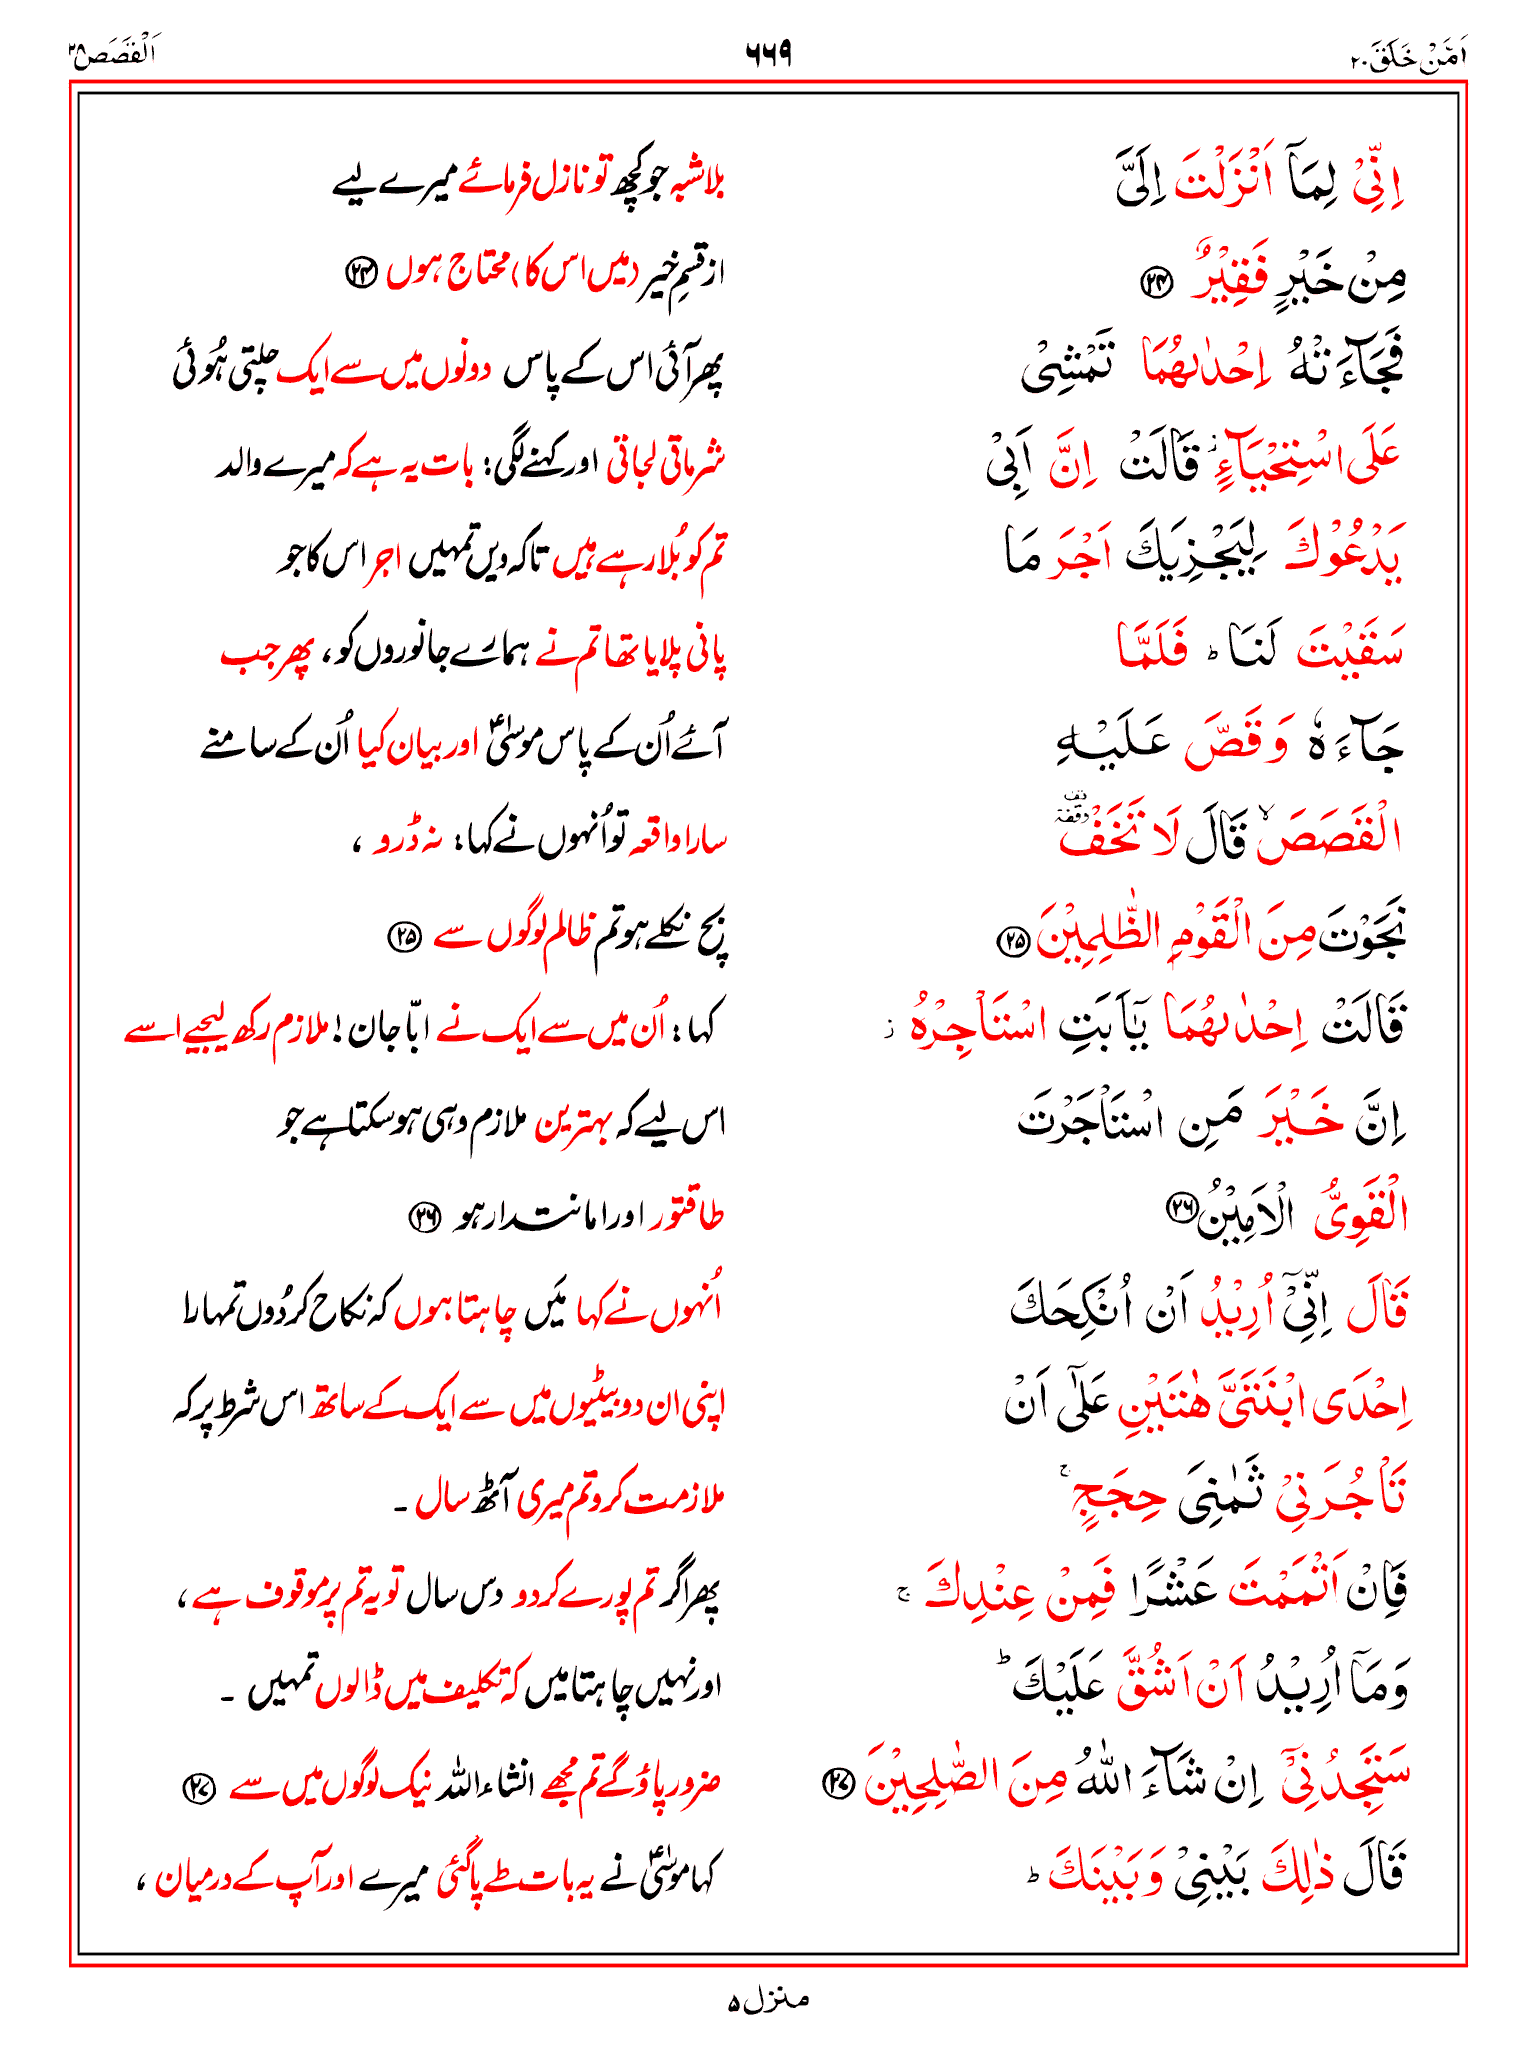 اَمَّنْ خَلَقَ ۲۰ ۶۶۹ اَلْقَصَص ۲۸
اِنِّیْ لِمَاۤ اَنْزَلْتَ اِلَیَّ بلاشبہ جو کچھ تو نازل فرمائے میرے لیے
مِنْ خَیْرٍ فَقِیْرٌ ۲۴ از قسمِ خیر (میں اس کا) محتاج ہوں ۲۴
فَجَآءَتْهُ اِحْدٰىهُمَا تَمْشِیْ پھر آئی اس کے پاس دونوں میں سے ایک چلتی ہُوئی
عَلَی اسْتِحْیَآءٍ ؗ قَالَتْ اِنَّ اَبِیْ شرماتی لجاتی اور کہنے لگی: بات یہ ہے کہ میرے والد
یَدْعُوْكَ لِیَجْزِیَكَ اَجْرَ مَا تم کو بُلا رہے ہیں تاکہ دیں تمہیں اجر اس کا جو
سَقَیْتَ لَنَا ؕ فَلَمَّا پانی پلایا تھا تم نے ہمارے جانوروں کو، پھر جب
جَآءَهٗ وَ قَصَّ عَلَیْهِ آئے اُن کے پاس موسیٰؑ اور بیان کیا اُن کے سامنے
الْقَصَصَ ۙ قَالَ لَا تَخَفْ ۥ وقفة سارا واقعہ تو اُنہوں نے کہا: نہ ڈرو ،
نَجَوْتَ مِنَ الْقَوْمِ الظّٰلِمِیْنَ ۲۵ بچ نکلے ہو تم ظالم لوگوں سے ۲۵
قَالَتْ اِحْدٰىهُمَا یٰۤاَبَتِ اسْتَاْجِرْهُ ؗ کہا: اُن میں سے ایک نے ابّا جان! ملازم رکھ لیجیے اسے
اِنَّ خَیْرَ مَنِ اسْتَاْجَرْتَ اس لیے کہ بہترین ملازم وہی ہو سکتا ہے جو
الْقَوِیُّ الْاَمِیْنُ ۲۶ طاقتور اور امانت دار ہو ۲۶
قَالَ اِنِّیْۤ اُرِیْدُ اَنْ اُنْكِحَكَ اُنہوں نے کہا مَیں چاہتا ہوں کہ نکاح کر دُوں تمہارا
اِحْدَی ابْنَتَیَّ هٰتَیْنِ عَلٰۤی اَنْ اپنی ان دو بیٹیوں میں سے ایک کے ساتھ اس شرط پر کہ
تَاْجُرَنِیْ ثَمٰنِیَ حِجَجٍ ۚ ملازمت کرو تم میری آٹھ سال ۔
فَاِنْ اَتْمَمْتَ عَشْرًا فَمِنْ عِنْدِكَ ۚ پھر اگر تم پورے کر دو دس سال تو یہ تم پر موقوف ہے ،
وَ مَاۤ اُرِیْدُ اَنْ اَشُقَّ عَلَیْكَ ؕ اور نہیں چاہتا میں کہ تکلیف میں ڈالوں تمہیں ۔
سَتَجِدُنِیْۤ اِنْ شَآءَ اللّٰهُ مِنَ الصّٰلِحِیْنَ ۲۷ ضرور پاؤ گے تم مجھے انشاء اللہ نیک لوگوں میں سے ۲۷
قَالَ ذٰلِكَ بَیْنِیْ وَ بَیْنَكَ ؕ کہا موسیٰؑ نے یہ بات طے پا گئی میرے اور آپ کے درمیان ،
منزل ۵